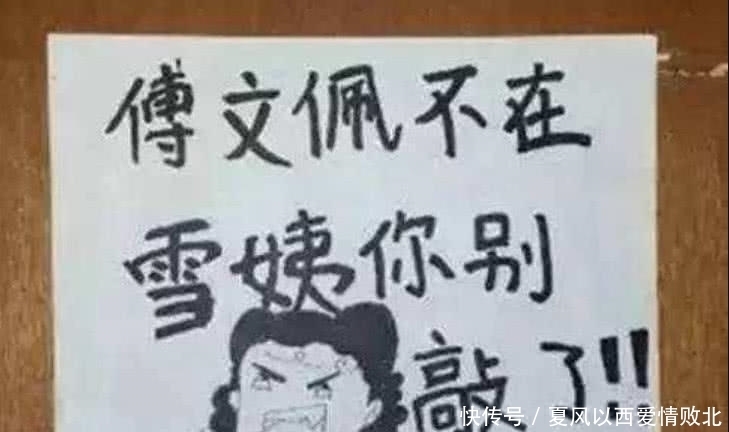 傅文佩不在
雪姨你别
敲了!!
快传号 / 夏风以西爱情败北